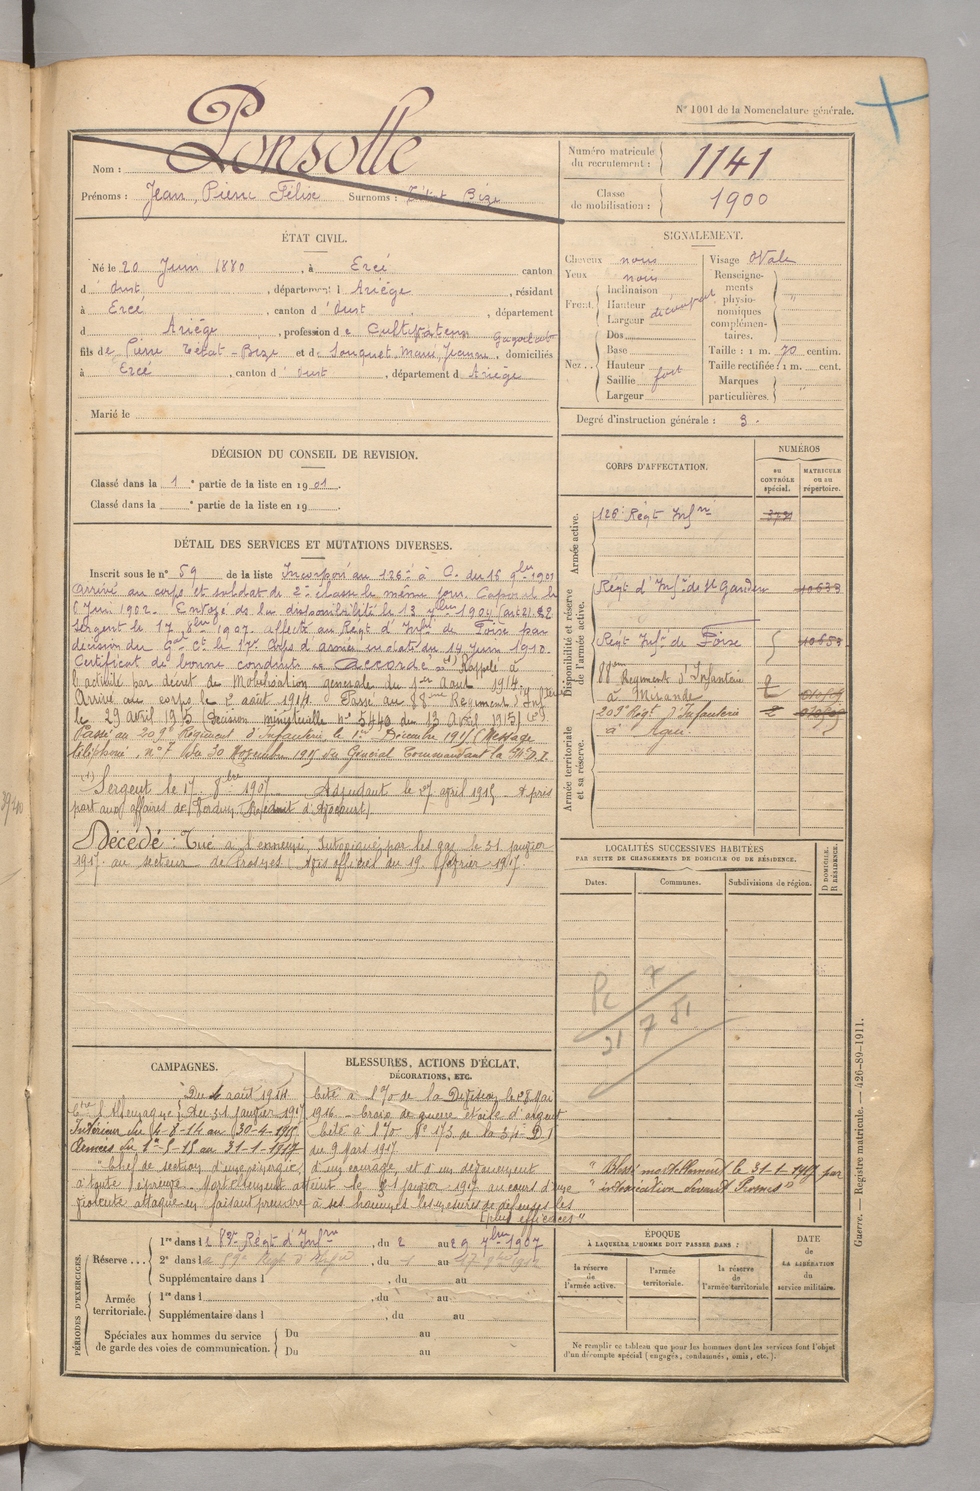 N° 1001 de la Nomenclature générale.
Nom : Ponsolle
Prénoms : Jean, Pierre Félix Surnoms : Tétat Bize
Numéro matricule du recrutement : 1141
Classe de mobilisation : 1900
ÉTAT CIVIL.
Né le 20 Juin 1880, à Ercé canton
d'Oust, département d Ariège, résidant
à Ercé, canton d'Oust, département
d Ariège, profession de Cultivateur
fils de Pierre Tétat-Bize et de Souquet, Marie, Jeanne, domiciliés
à Ercé, canton d'Oust, département d Ariège
Marié le
SIGNALEMENT.
Cheveux noirs
Yeux noirs
Front. Inclinaison
Hauteur découvert
Largeur
Nez.. Dos
Base
Hauteur
Saillie fort
Largeur
Visage Ovale
Renseignements physionomiques complémentaires. "
Taille : 1 m. 70 centim.
Taille rectifiée : 1 m. cent.
Marques particulières. "
Degré d'instruction générale : 3.
DÉCISION DU CONSEIL DE REVISION.
Classé dans la 1e partie de la liste en 1901.
Classé dans la e partie de la liste en 19
DÉTAIL DES SERVICES ET MUTATIONS DIVERSES.
Inscrit sous le n° 59 de la liste Incorporé au 126e à C. du 16 9bre 1901
Arrivé au corps et soldat de 2e classe le même jour. Caporal le
6 Juin 1902. Envoyé de la disponibilité le 13 7bre 1904
Sergent le 17 8bre 1907. affecté au Régt d'Infie de Foix par
décision du Gal Ct le 17e Corps d'armée en date du 14 Juin 1910.
Certificat de bonne conduite "Accordé" Rappelé à
l'activité par décret de Mobilisation générale du 1er Août 1914.
Arrivé au corps le 2 août 1914. Passé au 88eme Régiment d'Inf
le 29 avril 1915 (Décision ministérielle n° 5440 du 13 Avril 1915)
Passé au 209e Régiment d'Infanterie le 1er Décembre 1915 (Message
téléphoné, n° 7 du 30 Novembre 1915 du Général Commandant la D.I.
(1) Sergent le 17 8bre 1907 Adjudant le 27 avril 1915 A pris
part aux affaires de Verdun (Réduit d'Avocourt)
Décédé : Tué à l'ennemi, Intoxiqué par les gaz le 31 janvier
1917 au secteur de Prosnes (Avis officiel du 19 février 1917.
CORPS D'AFFECTATION.
NUMÉROS
au CONTRÔLE spécial.
MATRICULE ou au répertoire.
Armée active.
126e Régt Infie
Disponibilité et réserve de l'armée active.
Régt d'Infie de St Gaudens
Régt Infie de Foix
88eme Régiment d'Infanterie
à Mirande
209e Régt d'Infanterie
à Agen
Armée territoriale et sa réserve.
LOCALITÉS SUCCESSIVES HABITÉES
PAR SUITE DE CHANGEMENTS DE DOMICILE OU DE RÉSIDENCE.
Dates.
Communes.
Subdivisions de région.
D DOMICILE. R RÉSIDENCE.
CAMPAGNES.
Du 4 août 1914
Ctre l'Allemagne Au 31 janvier 1917
Intérieur du 4-8-14 au 30-4-1915
Armées du 1er-5-15 au 31-1-1917
BLESSURES, ACTIONS D'ÉCLAT,
DÉCORATIONS, ETC.
Cité à l'O/ de la Division le 28 Mai
1916 - Croix de guerre étoile d'argent
Cité à l'O/ N° 173 de la D.I
du 9 Mars 1917
"Chef de section d'une énergie, d'un courage, et d'un dévouement
à toute épreuve. Mortellement atteint le 31 janvier 1917 au cours d'une
violente attaque en faisant prendre à ses hommes les mesures de défenses les
plus efficaces"
"Blessé mortellement le 31-1-1917 par
"intoxication devant Prosnes"
PÉRIODES D'EXERCICES.
Réserve... 1re dans le 88e Régt d'Infie, du 2 au 29 7bre 1907
2e dans le, du 1 au 17
Supplémentaire dans l, du au
Armée territoriale. 1re dans l, du au
Supplémentaire dans l, du au
Spéciales aux hommes du service de garde des voies de communication. Du au
Du au
ÉPOQUE
À LAQUELLE L'HOMME DOIT PASSER DANS :
la réserve de l'armée active.
l'armée territoriale.
la réserve de l'armée territoriale
DATE de LA LIBÉRATION du service militaire.
Ne remplir ce tableau que pour les hommes dont les services font l'objet
d'un décompte spécial (engagés, condamnés, omis, etc.).
Guerre. — Registre matricule. — 426-89-1911.